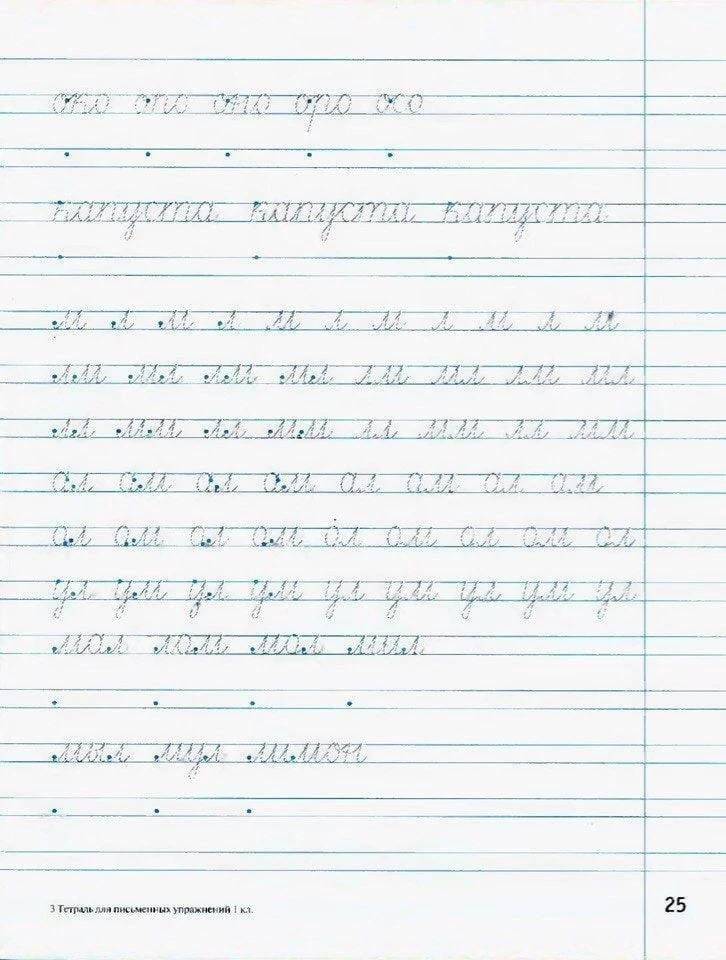 око опо оно оро осо
капуста капуста капуста
м л м л м л м л м л м
лм мл лм мл лм мл лм мл
лл мм лл мм лл мм лл мм
ал ам ал ам ал ам ал ам
ол ом ол ом ол ом ол ом ол
ул ум ул ум ул ум ул ум ул
мал лом мол мил
мыл мул лимон
3 Тетрадь для письменных упражнений 1 кл.
25